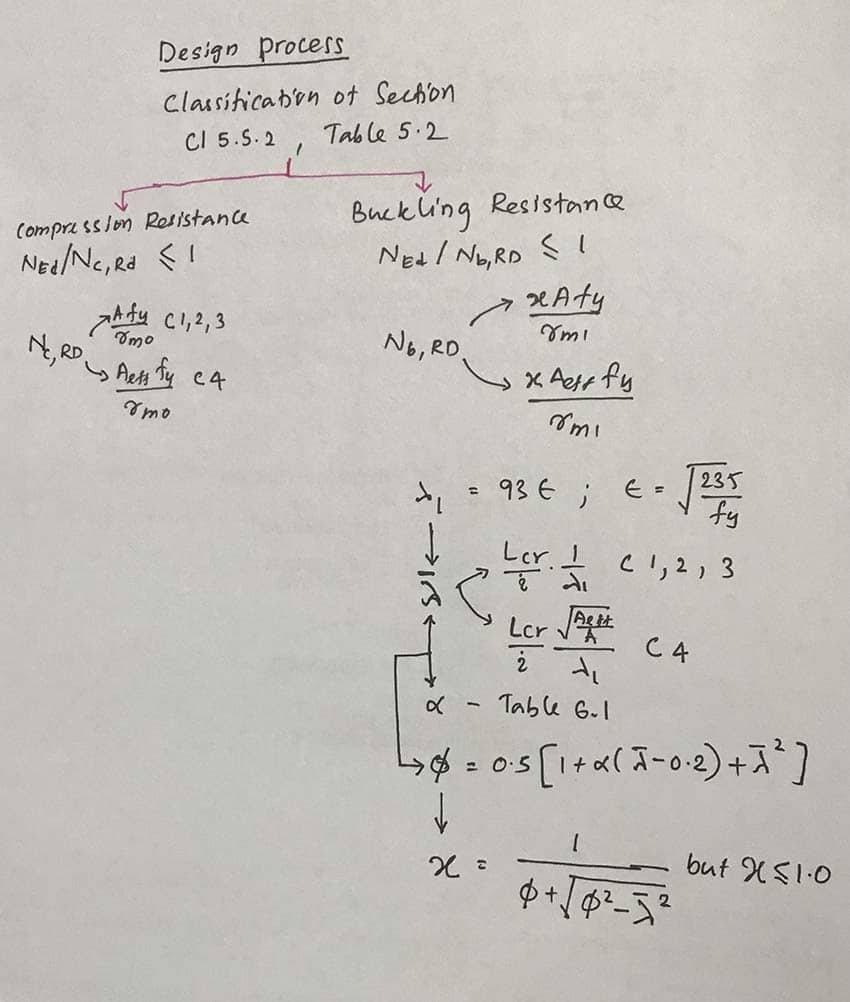 Design Process
Classification of Section
Cl 5.5.2 , Table 5.2
Compression Resistance
NEd/Nc,Rd ≤ 1
Nc,RD
Afy/γm0 C 1,2,3
Aeff fy/γm0 C4
Buckling Resistance
NEd / Nb,RD ≤ 1
Nb,RD
xAfy/γm1
x Aeff fy/γm1
λ1 = 93 ϵ ; ϵ = √(235/fy)
λ̄
Lcr/i · 1/λ1 C 1, 2, 3
Lcr/i √(Aeff/A)/λ1 C 4
α - Table 6.1
ϕ = 0.5 [1 + α( λ̄ - 0.2) + λ̄²]
x = 1/(ϕ + √(ϕ² - λ̄²)) but x ≤ 1.0